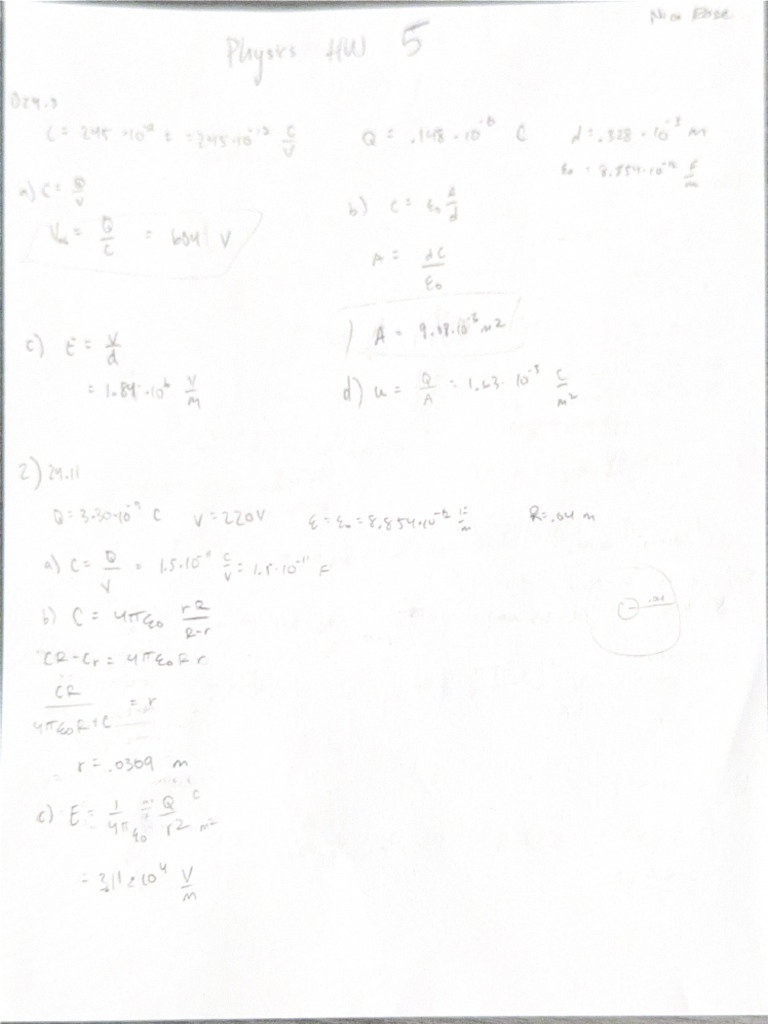 Physics HW 5
024.3
C = 245 · 10⁻¹² F = 245 · 10⁻¹² C/V Q = .148 · 10⁻⁶ C d = .328 · 10⁻³ m
ε₀ = 8.854 · 10⁻¹² F/m
a) C = Q/V
V = Q/C = 604 V
b) C = ε₀ A/d
A = dC/ε₀
A = 9.08 · 10⁻³ m²
c) E = V/d
= 1.84 · 10⁶ V/m
d) u = Q/A = 1.63 · 10⁻⁵ C/m²
2) 24.11
Q = 3.30 · 10⁻⁹ C V = 220V ε = ε₀ = 8.854 · 10⁻¹² F/m R = .04 m
a) C = Q/V = 1.5 · 10⁻¹¹ C/V = 1.5 · 10⁻¹¹ F
.04
b) C = 4πε₀ rR/R-r
CR - Cr = 4πε₀Rr
CR/4πε₀R+C = r
r = .0309 m
c) E = 1/4πε₀ Q/r² C/m²
= 3.11 · 10⁴ V/m